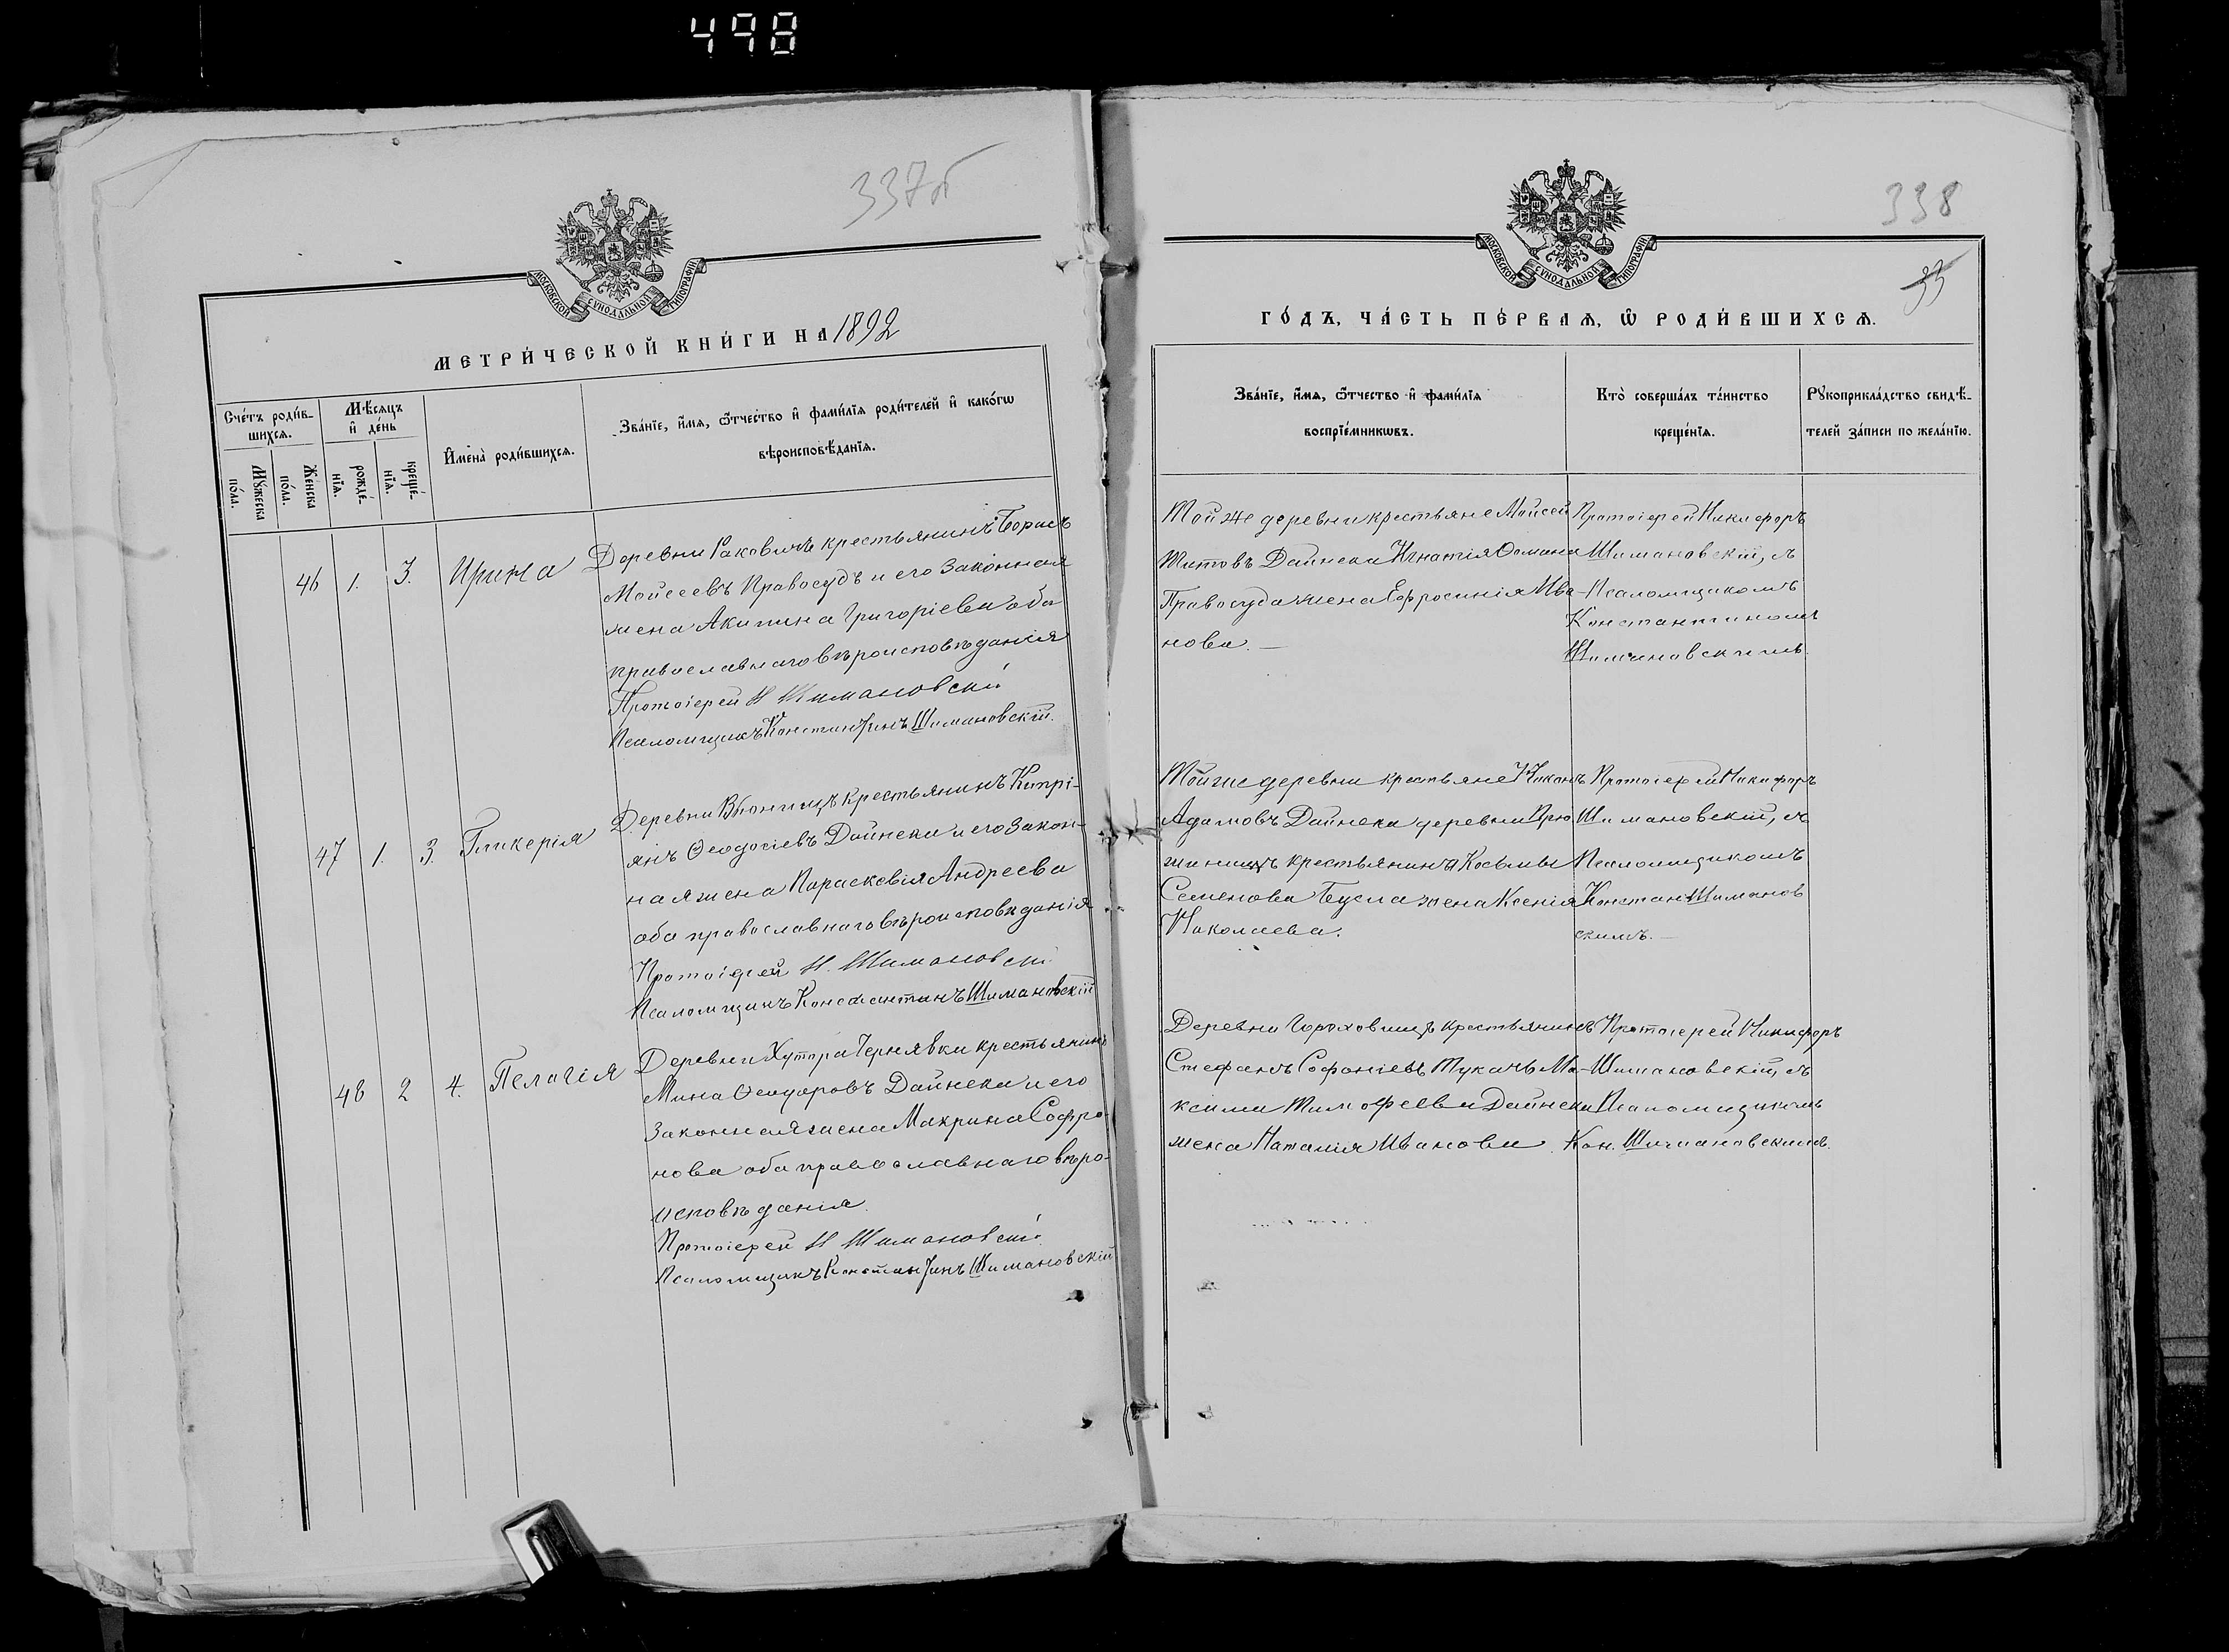 498
337об
МОСКОВСКОЙ СѴНОДАЛЬНОЙ ТИПОГРАФІИ
МЕТРИ́ЧЕСКОЙ КНИ́ГИ НА 1892
Сче́тъ роди́в-
шихсѧ.
Мѣ́сѧцъ
и҆ де́нь
И҆мена̀ роди́вшихсѧ.
Зва́нїе, и҆́мѧ, ѻ҆́тчество и҆ фами́лїѧ роди́телей и҆ како́гѡ
вѣроисповѣ́данїѧ.
Мꙋ́жеска
по́ла.
Же́нска
по́ла.
рожде́-
нїѧ.
креще́-
нїѧ.
46 1. 3. Ирина
Деревни Раковичъ крестьянинъ Борисъ
Моисеевъ Правосудъ и его законная
жена Акилина Григоріева оба
православнаго вѣроисповѣданія
Протоіерей Н Шимановскій
Псаломщикъ Константинъ Шимановскій.
47 1. 3. Гликерія
Деревни Вѣтничъ крестьянинъ Кипрі-
янъ Ѳеодосіевъ Дайнека и его закон-
ная жена Параскевія Андреева
оба православнаго вѣроисповѣданія
Протоіерей Н. Шимановскі
Псаломщикъ Константинъ Шимановскій
48 2 4. Пелагія
Деревни Хутора Чернявки крестьянинъ
Мина Ѳеодоровъ Дайнека и его
законная жена Макрина Софро-
нова оба православнаго вѣро-
исповѣданія.
Протоіерей Н Шимановскій
Псаломщикъ Константинъ Шимановскій
338
33
МОСКОВСКОЙ СѴНОДАЛЬНОЙ ТИПОГРАФІИ
ГО́ДЪ, ЧА́СТЬ ПЕ́РВАѦ, Ѽ РОДИ́ВШИХСѦ.
Зва́нїе, и҆́мѧ, ѻ҆́тчество и҆ фами́лїѧ
воспрїе́мникѡвъ.
Кто̀ соверша́лъ та́инство
креще́нїѧ.
Рꙋкоприкла́дство свидѣ́-
телей за́писи по жела́нїю.
Той же деревни крестьяне Моисей
Титовъ Дайнека Игнатія Ѳомина
Правосуда жена Ефросинія Ива-
нова.
Протоіерей Никифоръ
Шимановскій, съ
Псаломщикомъ
Константиномъ
Шимановскимъ.
Той же деревни крестьяне Никонъ
Адамовъ Дайнека деревни Прю
шинищъ крестьянина Косьмы
Семенова Бусла жена Ксенія
Николаева.
Протоіерей Никифоръ
Шимановскій, съ
Псаломщикомъ
Констан Шиманов
скимъ.
Деревни Гороховищъ крестьянинъ
Стефанъ Софоніевъ Тукачъ Ма-
ксима Тимоѳеева Дайнеки
жена Наталія Иванова.
Протоіерей Никифоръ
Шимановскій, съ
Псаломщикомъ
Кон. Шимановскимъ.